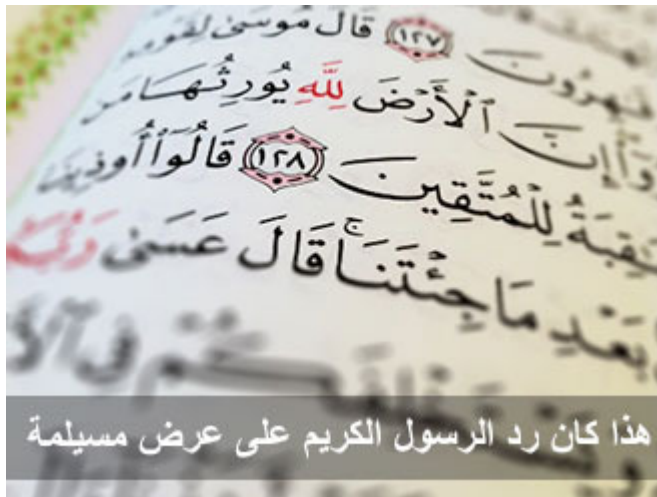 قَٰهِرُونَ ١٢٧ قَالَ مُوسَىٰ لِقَوْمِهِ
وَٱ إِنَّ ٱلْأَرْضَ لِلَّهِ يُورِثُهَا مَن
عَٰقِبَةُ لِلْمُتَّقِينَ ١٢٨ قَالُوٓا۟ أُوذِينَا
بَعْدِ مَا جِئْتَنَا ۚ قَالَ عَسَىٰ رَبُّ
فِي
هذا كان رد الرسول الكريم على عرض مسيلمة